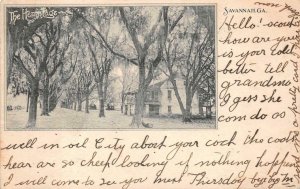 The Hermitage
SAVANNAH, GA.
Hello! scout
how are you
is your cold
better tell
grandma
I gess she
can do as
well in oil City about your coat, the coats
hear are so cheep looking if nothing happens
I will come to see you next Thursday